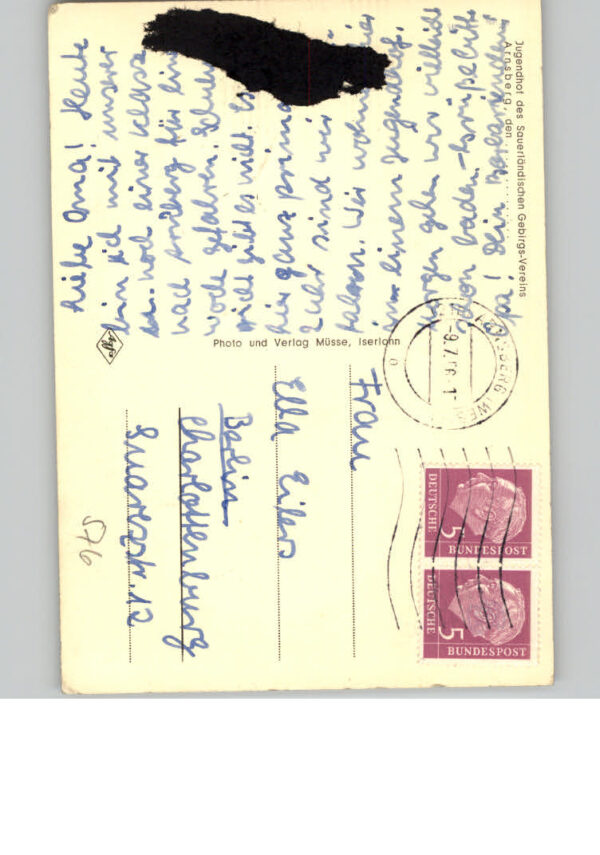 Jugendhof des Sauerländischen Gebirgs-Vereins
Arnsberg, den
Liebe Oma! Heute
bin ich mit unserer
u. noch einer Klasse
nach Arnsberg für eine
Woche gefahren. Schule
gibt es nicht. Es
hier ganz prima
Uhr sind wir
Wir wohnen hier
in einem Jugendhof.
Morgen gehen wir vielleicht
schon baden. Grüße bitte
Opa! Dein
Agfa
Photo und Verlag Müsse, Iserlohn
ARNSBERG (WES
-9.7.56.-1
Frau
Ella Eilers
Berlin
Charlottenburg
Suarezstr. 12
576
DEUTSCHE
5
BUNDESPOST
DEUTSCHE
5
BUNDESPOST